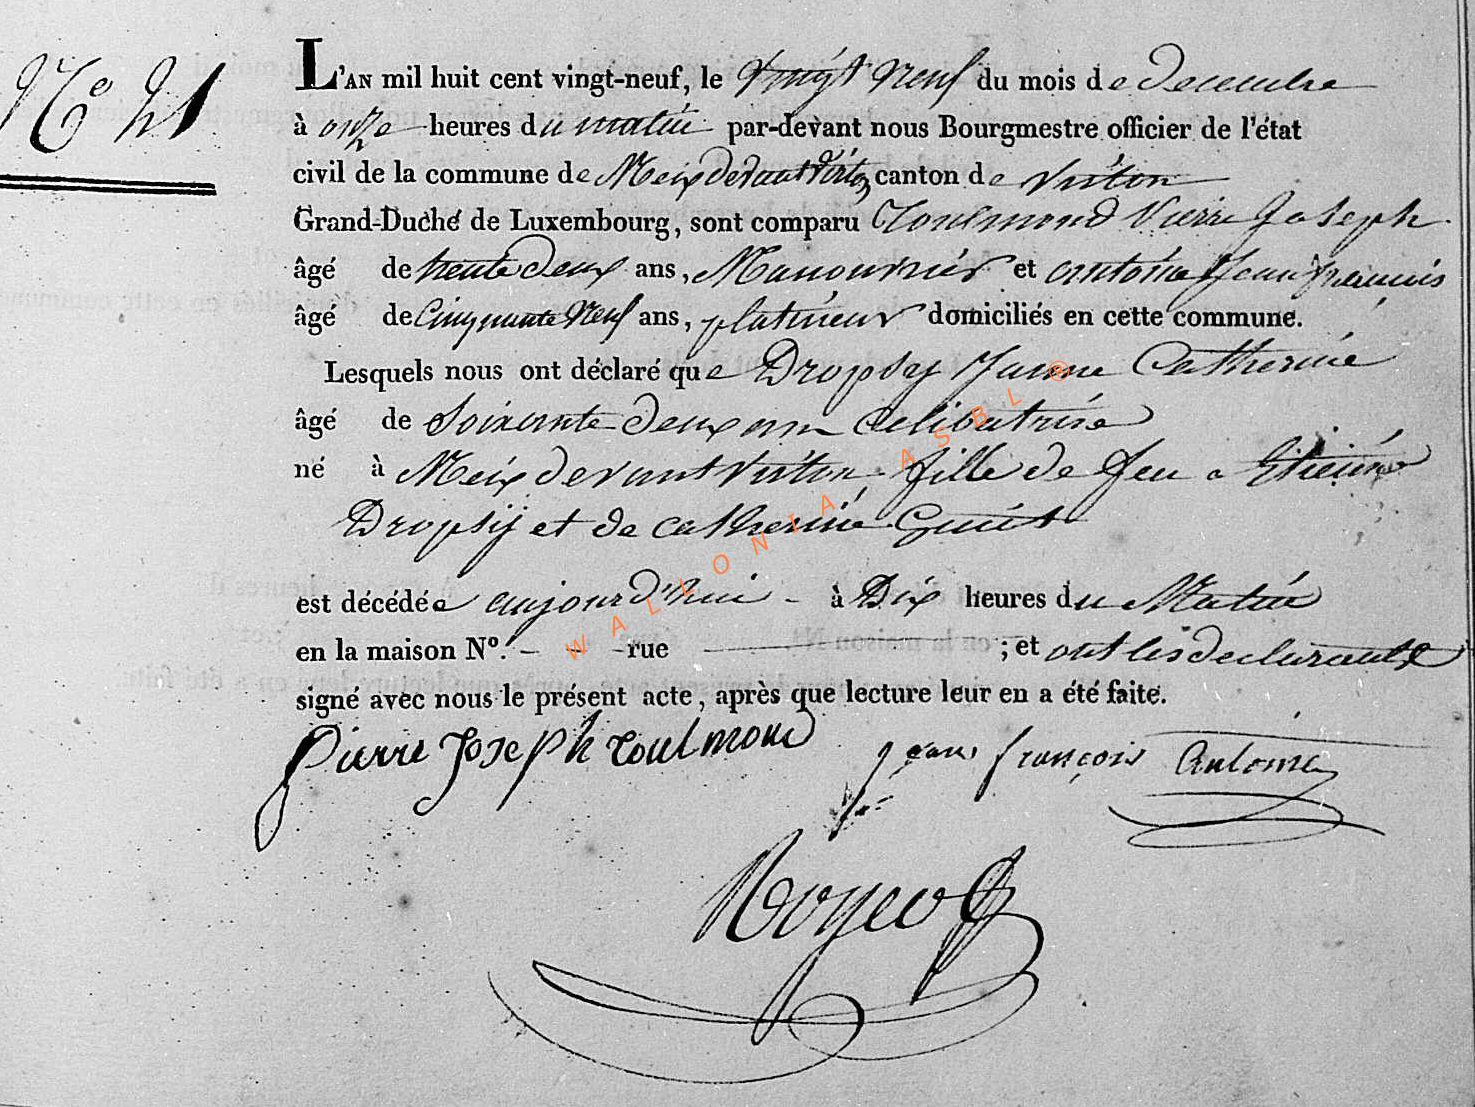 No 21
L'AN mil huit cent vingt-neuf, le vingt neuf du mois de decembre
à onze heures du matin par-devant nous Bourgmestre officier de l'état
civil de la commune de Meix devant Virton canton de Virton
Grand-Duché de Luxembourg, sont comparu Toulmond Pierre Joseph
âgé de trente deux ans, Manouvrier et antoine Jean françois
âgé de Cinquante Neuf ans, platineur domiciliés en cette commune.
Lesquels nous ont déclaré que Dropsy Jeanne Catherine
âgé de Soixante deux ans Celibatrise
né à Meix devant Virton fille de feu Etienne
Dropsy et de catherine
est décédée aujourd'hui à Dix heures du Matin
en la maison No. - - - rue ; et ont les declarants
signé avec nous le présent acte, après que lecture leur en a été faite.
Pierre Joseph toulmond jean françois Antoine
WALLONIA ASBL ®